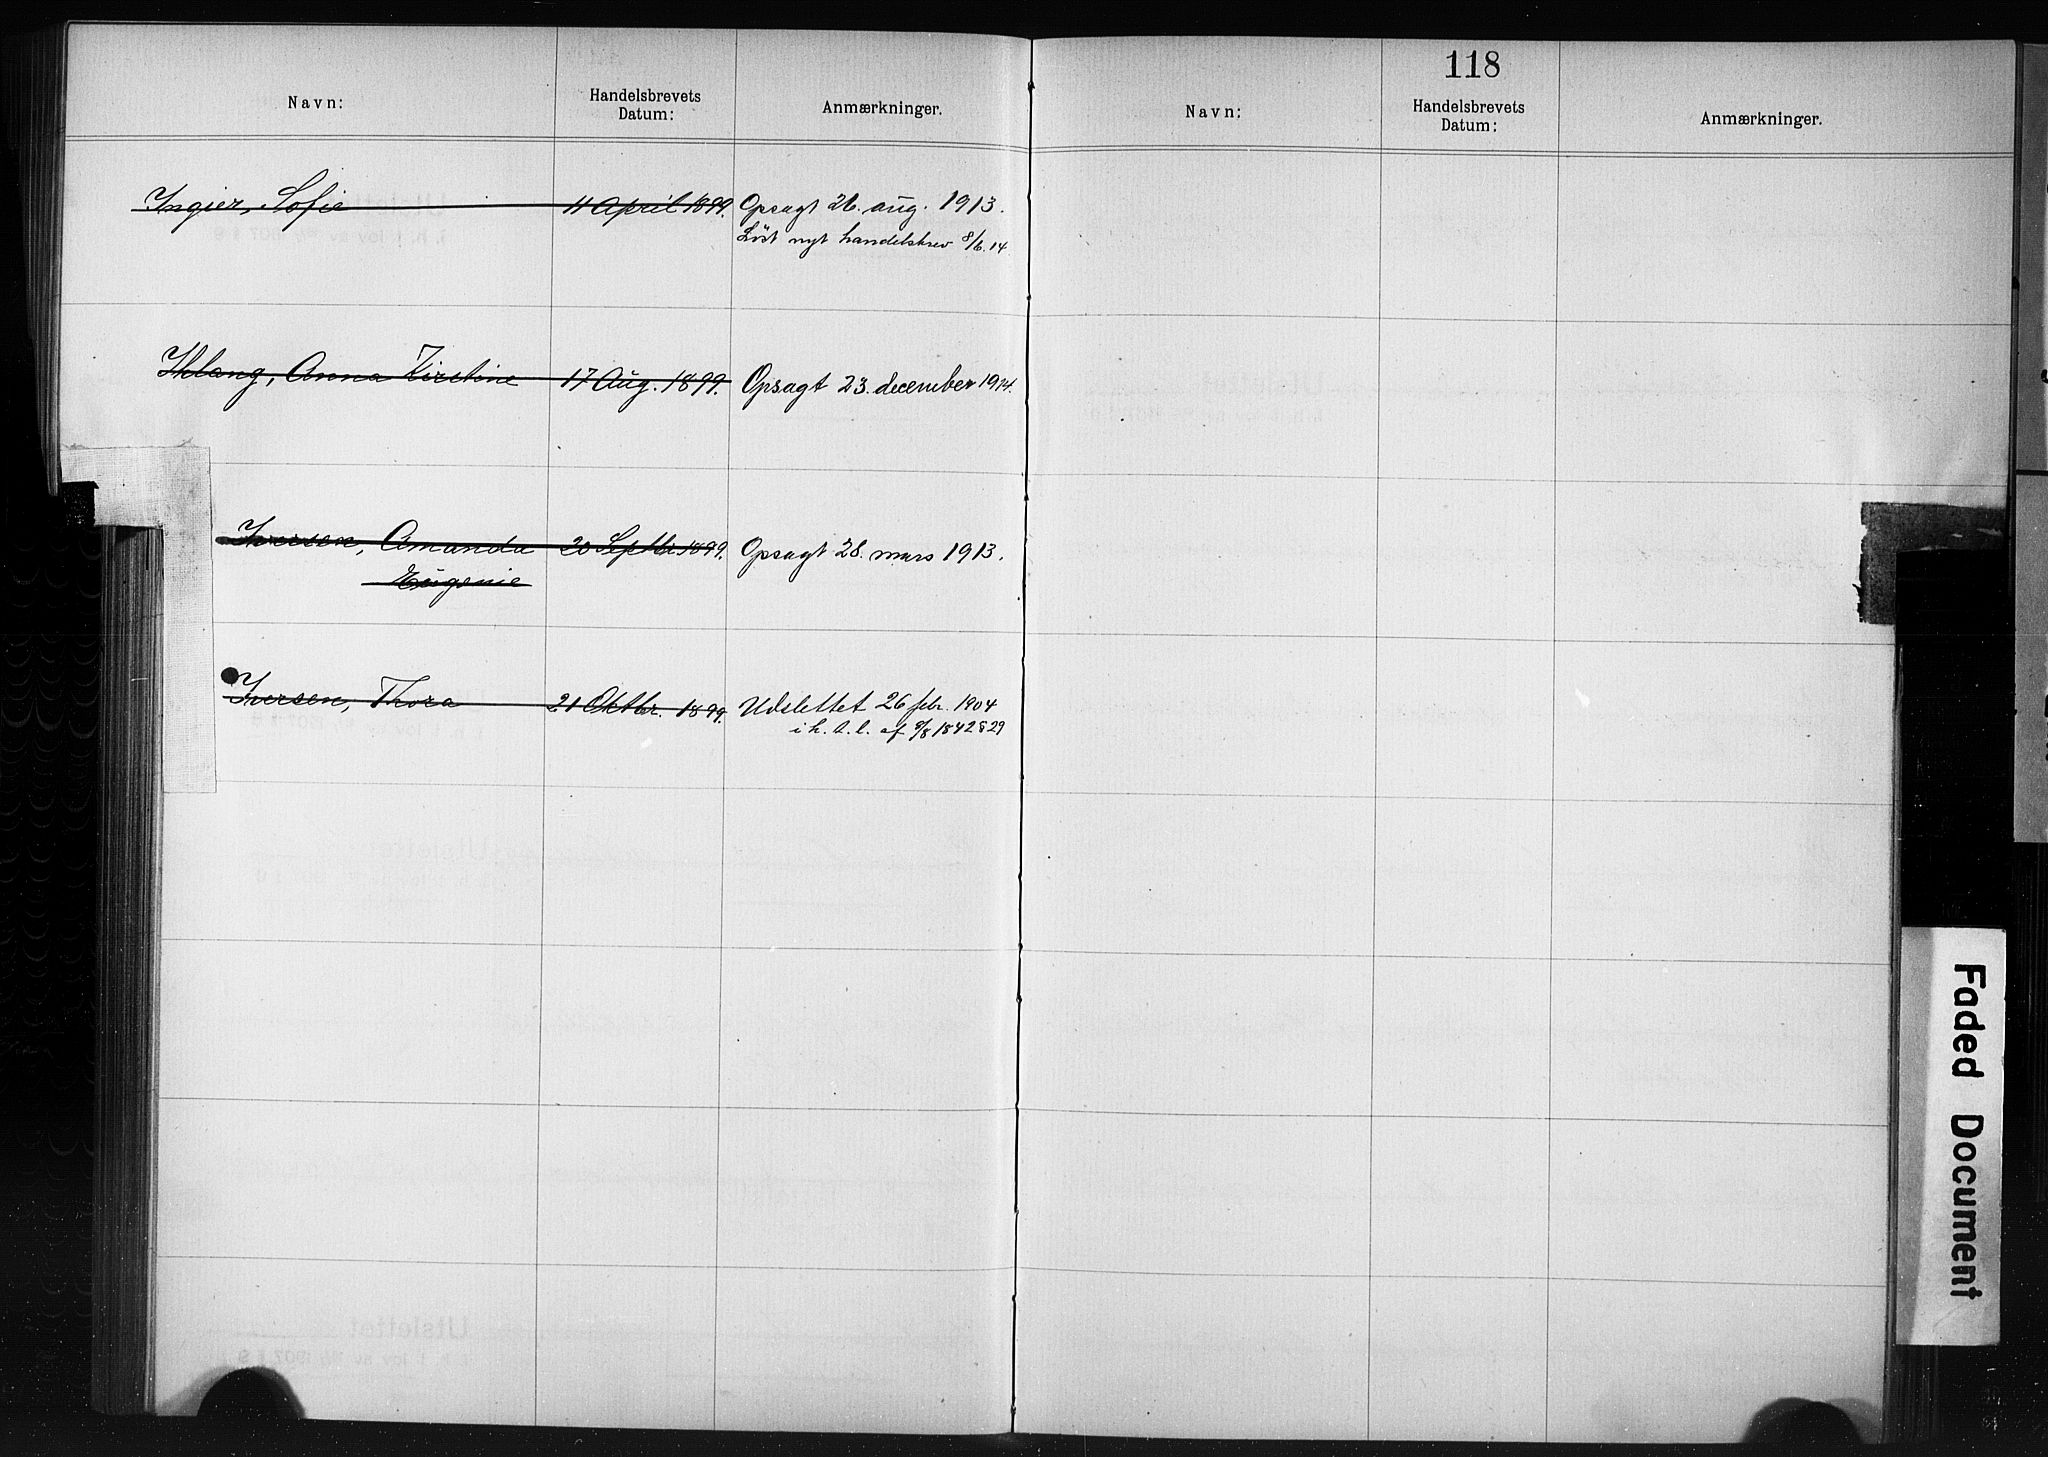 Navn: Handelsbrevets Datum: Anmærkninger.
Ingier, Sofie 11 April 1899. Opsagt 26. aug. 1913.
Löst nyt handelsbrev 8/6.14
Ihlang, Anna Kirstine 17 Aug. 1899. Opsagt 23. december 1914.
Iversen, Amanda 20 Septbr 1899. Opsagt 28. mars 1913.
Eugenie
Iversen, Thora 21 Oktbr. 1899. Udslettet 26 febr. 1904
i h. t. l. af 8/8 1842 § 29
118
Navn: Handelsbrevets Datum: Anmærkninger.
Faded Document